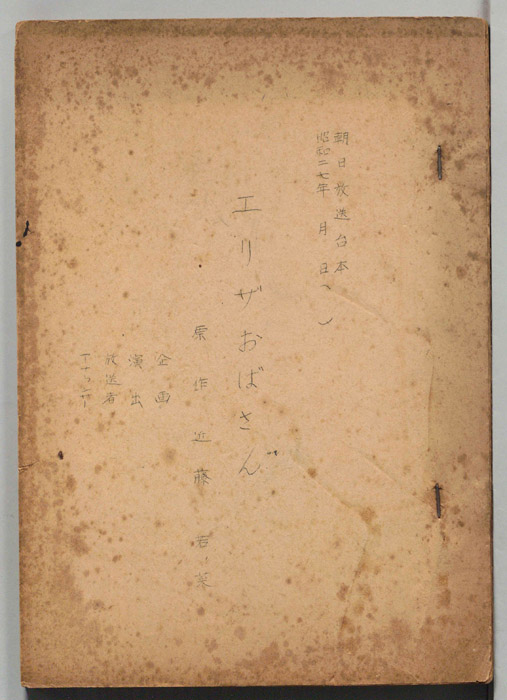 朝日放送台本
昭和二七年 月 日( )
エリザおばさん
原作 近藤若菜
企画
演出
放送者
アナウンサー